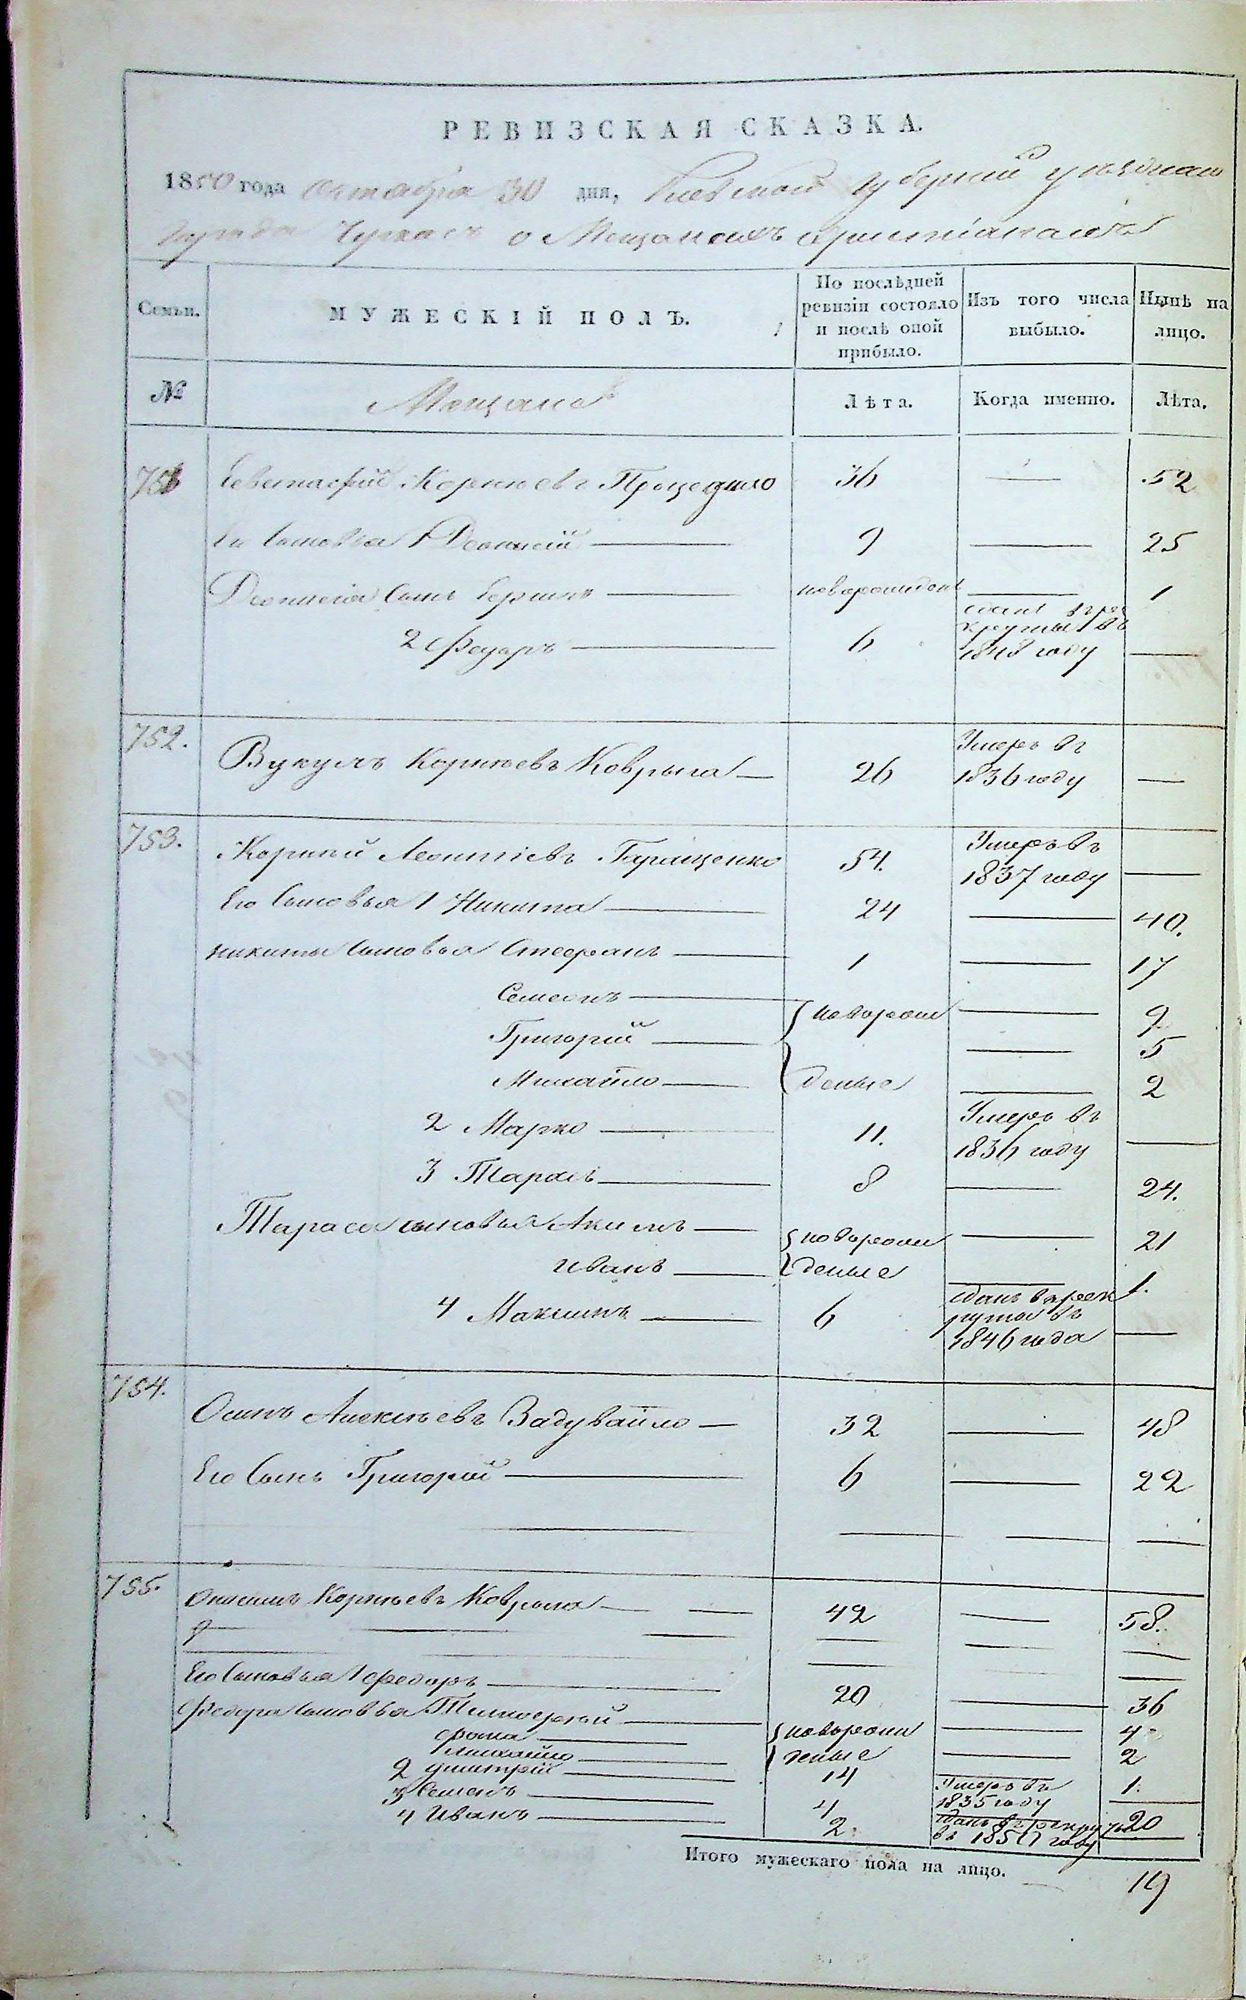 РЕВИЗСКАЯ СКАЗКА.
1850 года Октября 30 дня, Киевской Губерніи уѣзднаго
города Черкасъ о Мещанахъ христіанахъ
Семьи. МУЖЕСКІЙ ПОЛЪ. По послѣдней ревизіи состояло и послѣ оной прибыло. Изъ того числа выбыло. Нынѣ на лицо.
№ Мещане Лѣта. Когда именно. Лѣта.
751 Евстафій Корнѣевъ 36 — 52
Его сыновья 1 Деонисій 9 — 25
Деонисія сынъ новорожден — 1
2 Федоръ 6 1848 году —
752. Вукулъ Корнѣевъ Коврыга 26 Умеръ въ 1836 году —
753. Корній Леонтіевъ Геращенко 54. Умеръ въ 1837 году —
Его сыновья 1 Никита 24 — 40.
Никиты сыновья Стефанъ 1 — 17
Семенъ новорож — 9
Григорій — 5
Михайло деные — 2
2 Марко 11. Умеръ въ 1836 году —
3 Тарасъ 8 — 24.
Тараса сыновья Акимъ новорож — 21
Иванъ деные — 1.
4 Максимъ 6 сданъ в рек руты въ 1846 года —
754. Осипъ Алексѣевъ Задувайло 32 — 48
Его сынъ Григорій 6 — 22
755. Онисимъ Корнѣевъ Коврыга 42 — 58.
Его сыновья 1 Федоръ 20 — 36
Федора сыновья Тимофей новорож — 4
Фома деные — 2
Михайло 1.
2 Дмитрій 14 Умеръ въ 1835 году —
3 Семенъ 4 20
4 Иванъ 2 сданъ въ рекруты въ 1850 году —
Итого мужескаго пола на лицо. 19